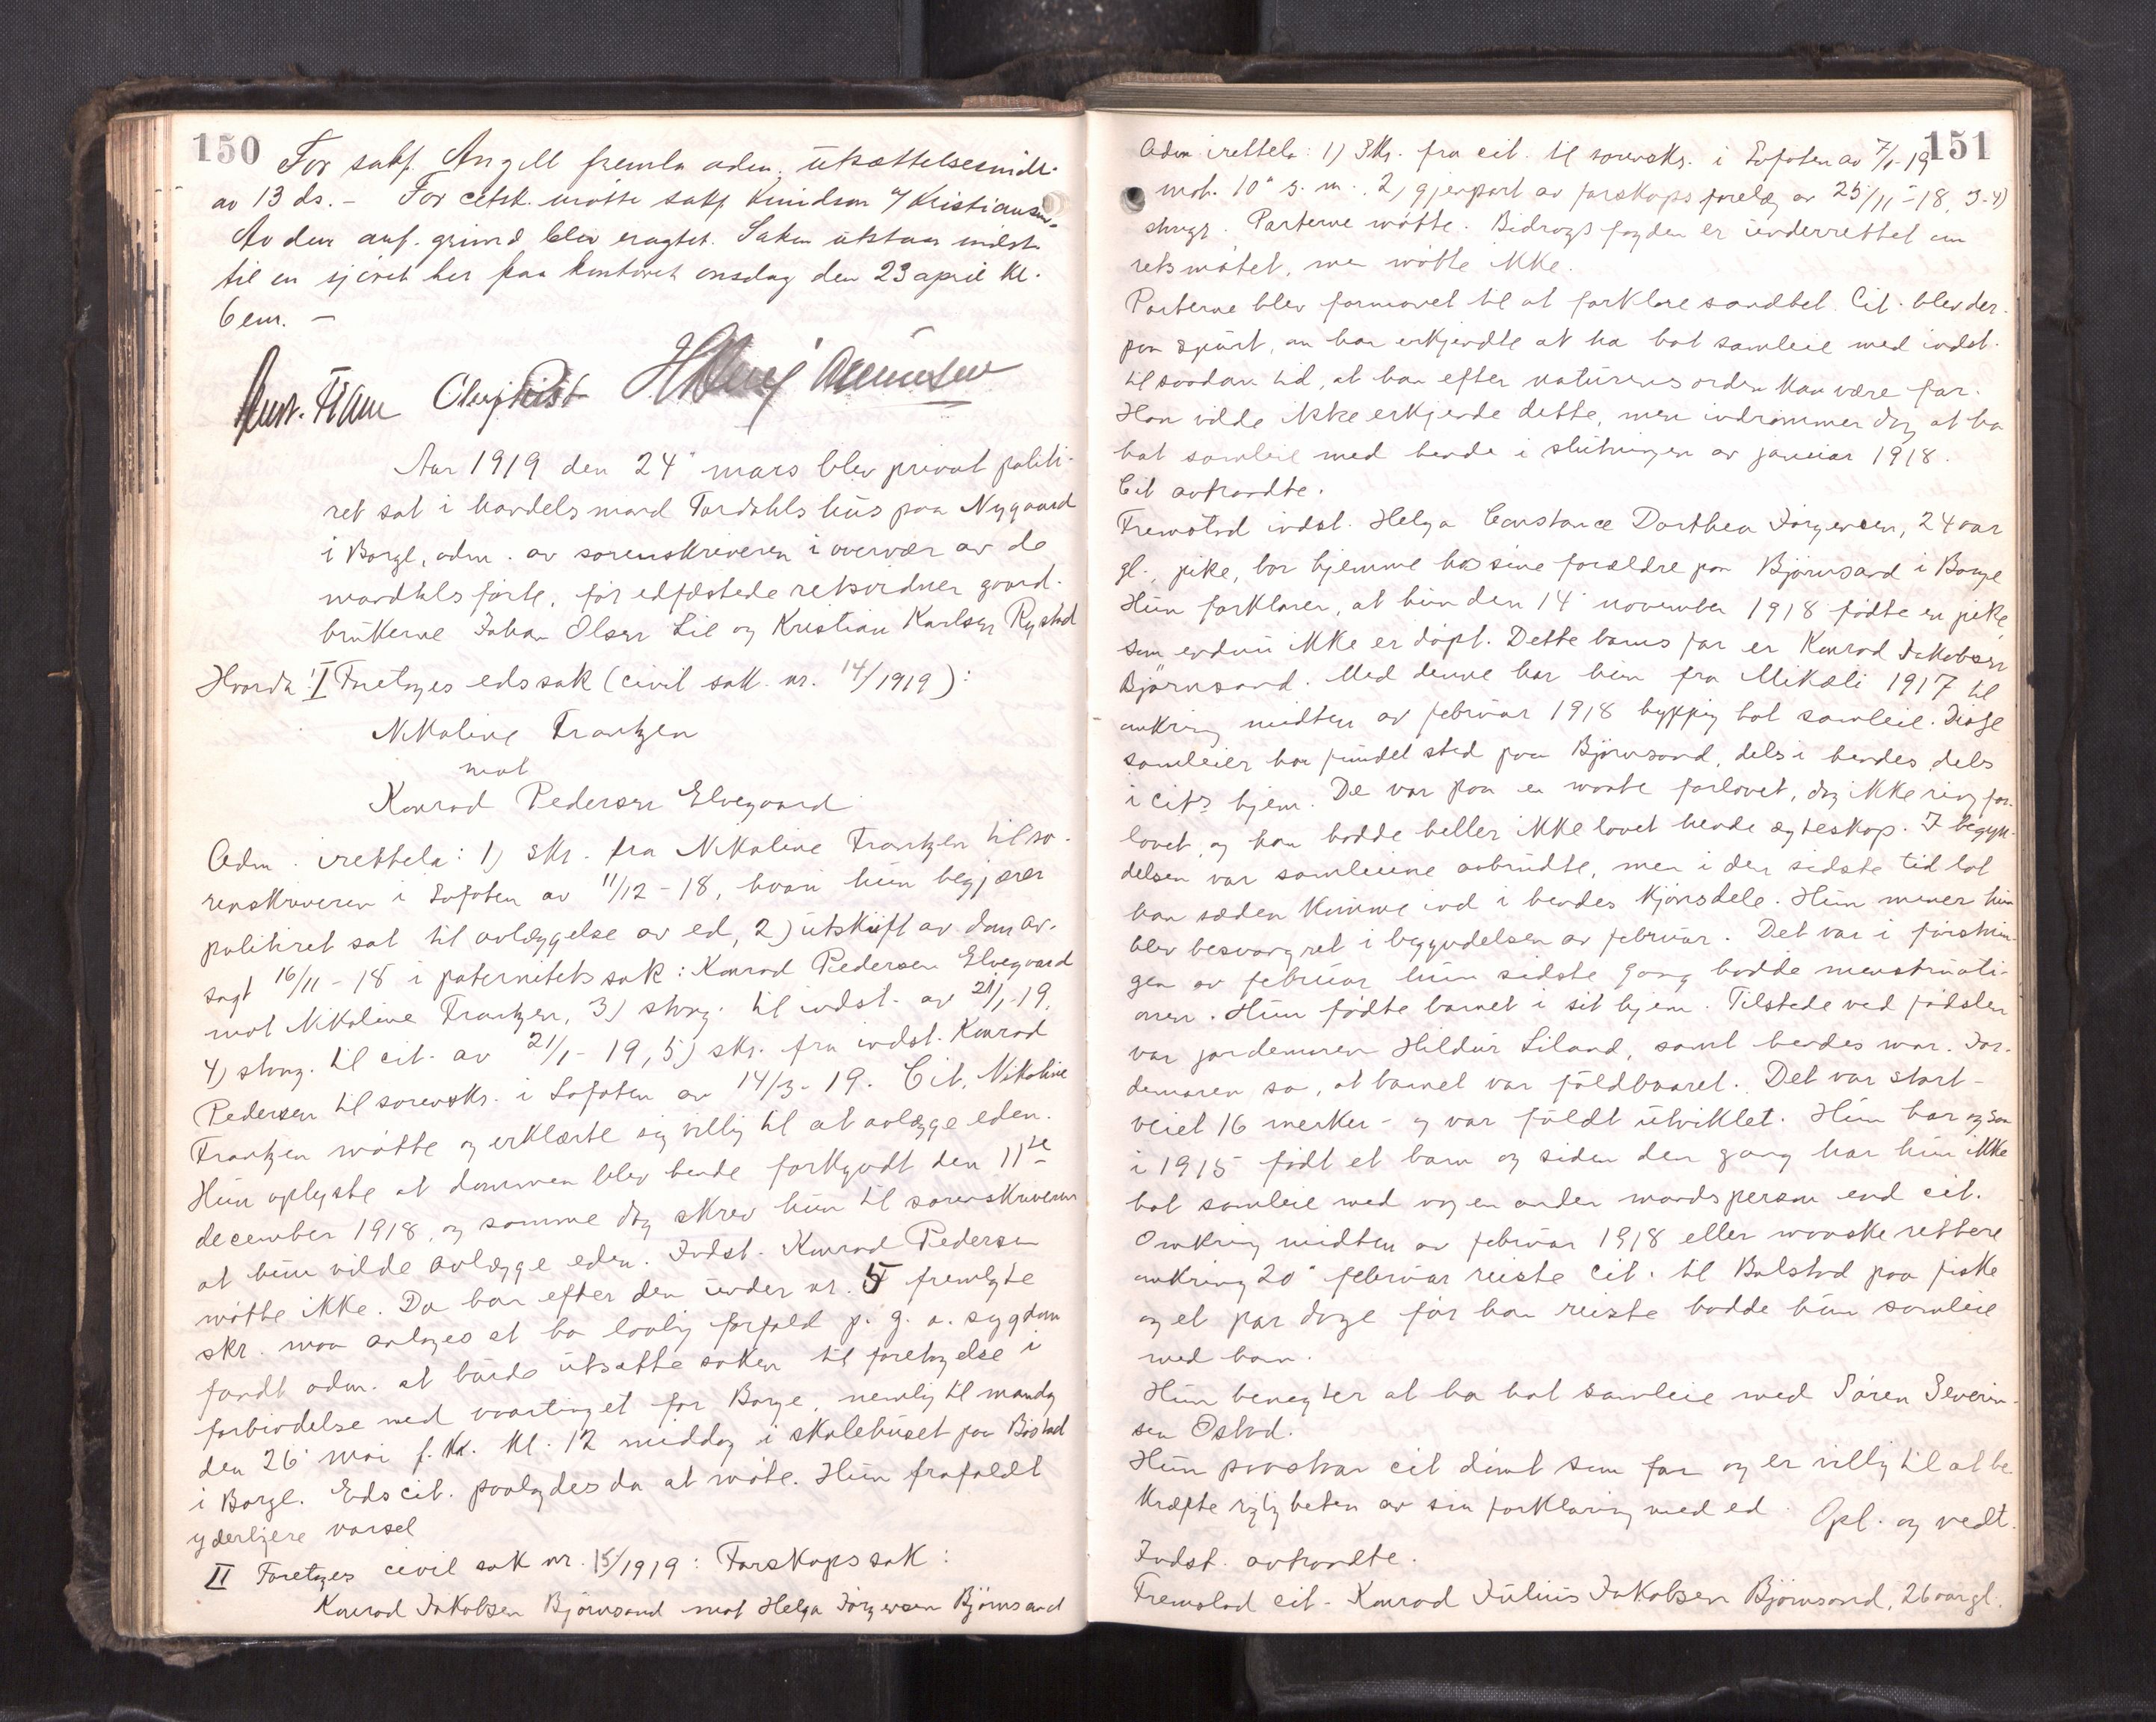 150
For sakf. Angell fremla adm. utsættelsesmidl.
av 13 ds. - For citsk. møtte sakf. Knudsen v/ Kristiansen.
Av den anf. grund blev eragtet. Saken utstaar indst.
til en sjøret her paa kontoret onsdag den 23 april kl.
6 em. -
Aar 1919 den 24' mars blev privat politi-
ret sat i handelsmand Tordahls hus paa Nygaard
i Borge, adm. av sorenskriveren i overvær av de
mandtalsførte, før edfæstede retsvidner gaard-
brukerne Johan Olsen Lie og Kristian Karlsen Rystad
Hvorda: I Foretages edssak (civil sak nr. 14/1919):
Nikoline Frantzen
mot
Konrad Pedersen Elvegaard
Adm. irettela: 1) skr. fra Nikoline Frantzen til so-
renskriveren i Lofoten av 11/12-18, hvori hun begjærer
politiret sat til avlæggelse av ed, 2) utskrift av dom av-
sagt 16/11-18 i paternitetssak: Konrad Pedersen Elvegaard
mot Nikoline Frantzen, 3) stvng. til indst. av 21/1-19,
4) stvng. til cit. av 21/1-19, 5) skr. fra indst. Konrad
Pedersen til sorenskr. i Lofoten av 14/3-19. Cit. Nikoline
Frantzen møtte og erklærte sig villig til at avlægge eden.
Hun oplyste at dommen blev hende forkyndt den 11te
december 1918, og samme dag skrev hun til sorenskriveren
at hun vilde avlægge eden. Indst. Konrad Pedersen
møtte ikke. Da han efter den under nr. 5 fremlagte
skr. maa antages at ha lovlig forfald p. g. a. sygdom
fandt adm. at burde utsætte saken til foretagelse i
forbindelse med vaartinget for Borge, nemlig til mandag
den 26' mai f. kl. 12 middag i skolehuset paa Bøstad
i Borge. Eds cit. paalagdes da at møte. Hun frafaldt
yderligere varsel
II Foretages civil sak nr. 15/1919: Farskapssak:
Konrad Jakobsen Bjørnsand mot Helga Jørgensen Bjørnsand
151
Adm. irettela: 1) Skr. fra cit. til sorenskr. i Lofoten av 7/1-19
mot. 10' s. m., 2) gjenpart av farskapsforelæg av 25/11-18, 3-4)
stvngr. Parterne møtte. Bidragsfogden er underrettet om
retsmøtet, men møtte ikke.
Parterne blev formanet til at forklare sandhet. Cit. blev der-
paa spurt, om han erkjendte at ha hat samleie med indst.
til saadan tid, at han efter naturens orden kan være far.
Han vilde ikke erkjende dette, men indrømmer dog at ha
hat samleie med hende i slutningen av januar 1918.
Cit avtraadte.
Fremstod indst. Helga Constance Dorthea Jørgensen, 24 aar
gl., pike, bor hjemme hos sine forældre paa Bjørnsand i Borge
Hun forklarer, at hun den 14' november 1918 fødte en pike,
som endnu ikke er døpt. Dette barns far er Konrad Jakobsen
Bjørnsand. Med denne har hun fra Mikæli 1917 til
omkring midten av februar 1918 hyppig hat samleie. Disse
samleier har fundet sted paa Bjørnsand, dels i hendes, dels
i cits hjem. De var paa en maate forlovet, dog ikke ringfor-
lovet, og han hadde heller ikke lovet hende ægteskap. I begyn-
delsen var samleiene avbrudte, men i den sidste tid lot
han sæden komme ind i hendes kjønsdele. Hun mener hun
blev besvangret i begyndelsen av februar. Det var i førstnin-
gen av februar hun sidste gang hadde menstruati-
onen. Hun fødte barnet i sit hjem. Tilstede ved fødslen
var jordemoren Hildur Liland, samt hendes mor. Jor-
demoren sa, at barnet var fuldbaaret. Det var stort -
veiet 16 merker - og var fuldt utviklet. Hun har ogsaa
i 1915 født et barn og siden den gang har hun ikke
hat samleie med nogen anden mandsperson end cit.
Omkring midten av februar 1918 eller maaske rettere
omkring 20' februar reiste cit. til Balstad paa fiske
og et par dage før han reiste hadde hun samleie
med ham.
Hun benegter at ha hat samleie med Søren Severin-
sen Ostad.
Hun paastaar cit dømt som far og er villig til at be-
kræfte rigtigheten av sin forklaring med ed. Opl. og vedt.
Indst. avtraadte.
Fremstod cit. Konrad Julius Jakobsen Bjørnsand, 26 aar gl.